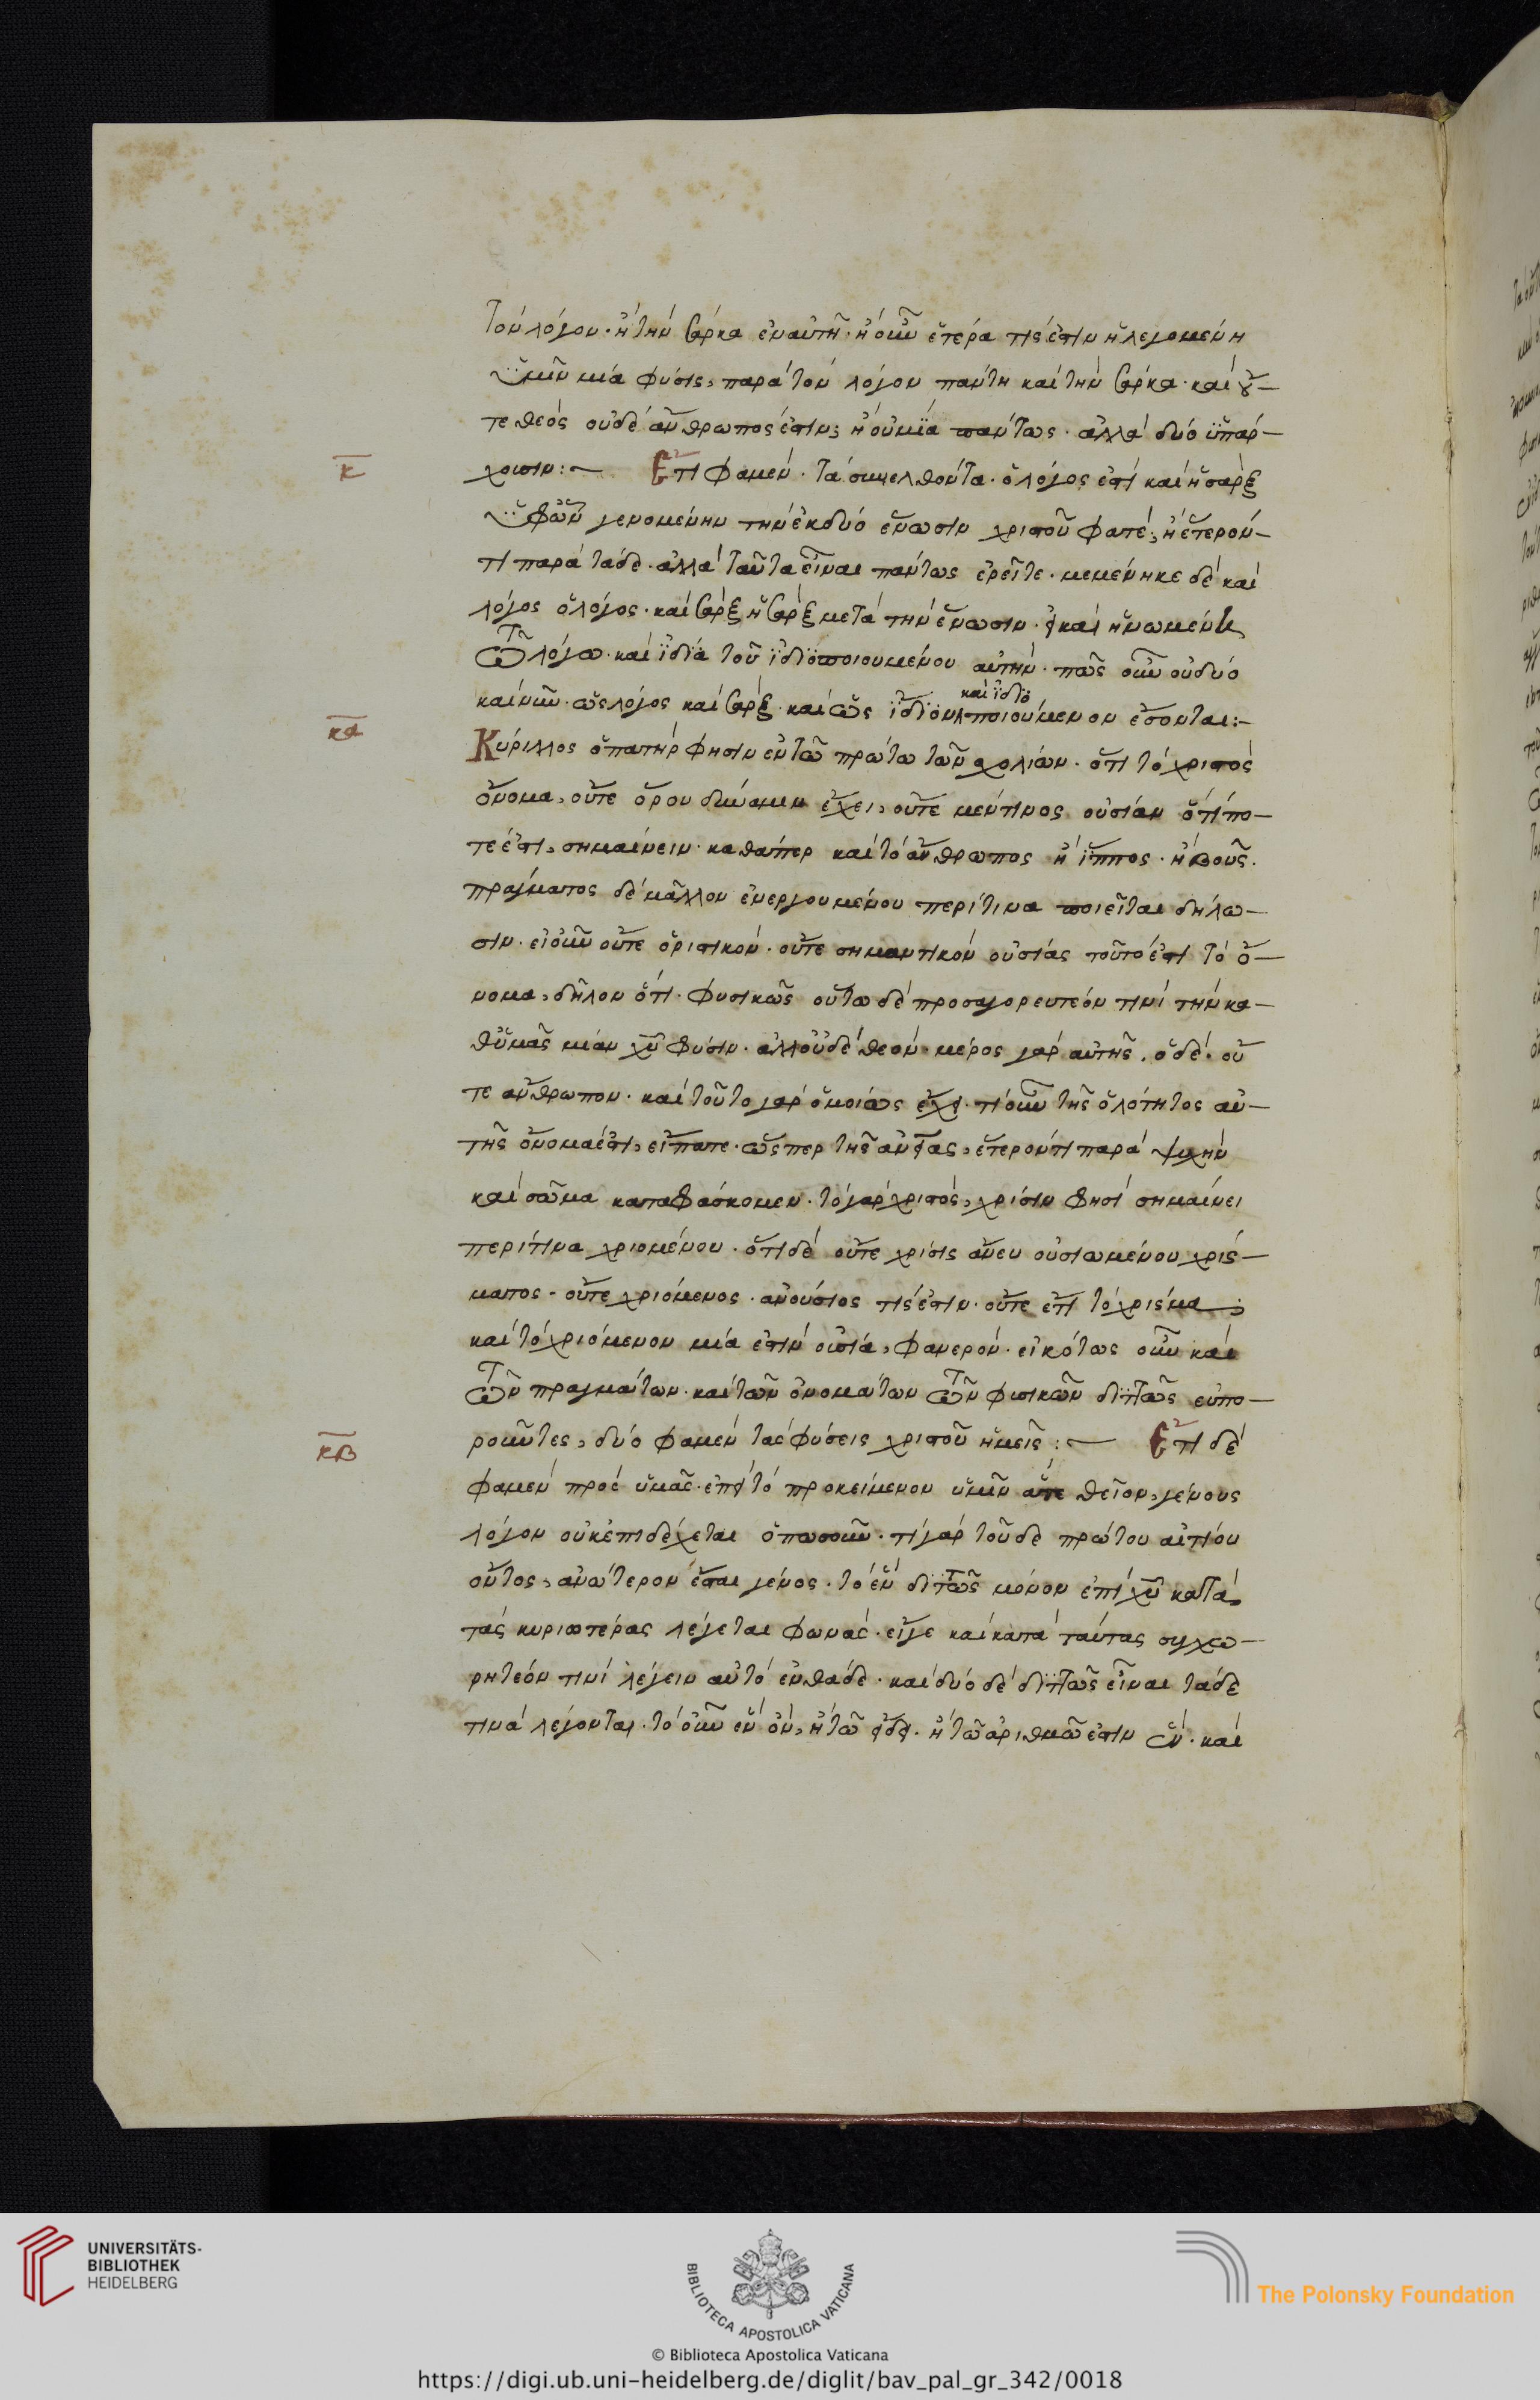 τὸν λόγον· ἢ τὴν σάρκα ἐν αὐτῇ· ἢ οὖν ἑτέρα τίς ἐστιν ἡ λεγομένη
ὑμῖν μία φύσις, παρὰ τὸν λόγον πάντη καὶ τὴν σάρκα· καὶ οὔ-
τε θεὸς οὐδὲ ἄνθρωπός ἐστιν; ἢ οὐ μία πάντως· ἀλλὰ δύο ὑπάρ-
χουσιν:~ Ἔτι φαμέν· τὰ συνελθόντα· ὁ λόγος ἐστὶ καὶ ἡ σάρξ
κ
ὑφῶν γενομένην τὴν ἐκ δύο ἕνωσιν χριστοῦ φατέ; ἢ ἕτερόν-
τι παρὰ τάδε· ἀλλὰ ταῦτα εἶναι πάντως ἐρεῖτε· μεμένηκε δὲ καὶ
λόγος ὁ λόγος· καὶ σὰρξ ἡ σὰρξ μετὰ τὴν ἕνωσιν· εἰ καὶ ἡνωμένη
τῶ λόγω· καὶ ἰδία τοῦ ἰδιοποιουμένου αὐτήν· πῶς οὖν οὐ δύο
καὶ νῦν· ὡς λόγος καὶ σάρξ· καὶ ὡς ἴδιον καὶ ἰδιοποιούμενον ἔσονται:~
κα
Κύριλλος ὁ πατήρ φησιν ἐν τῶ πρώτω τῶν σχολίων· ὅτι τὸ χριστὸς
ὄνομα, οὔτε ὅρου δύναμιν ἔχει, οὔτε μὲν τινὸς οὐσίαν ὅτί πο-
τέ ἐστι, σημαίνειν· καθάπερ καὶ τὸ ἄνθρωπος ἢ ἵππος· ἢ βοῦς.
πράγματος δὲ μᾶλλον ἐνεργουμένου περί τινα ποιεῖται δήλω-
σιν· εἰ οὖν οὔτε ὁριστικόν· οὔτε σημαντικὸν οὐσίας τοῦτό ἐστι τὸ ὄ-
νομα, δῆλον ὅτι· φυσικῶς οὕτω δὲ προσαγορευτέον τινὶ τὴν κα-
θ' ὑμᾶς μίαν χυ φύσιν· ἀλλ' οὐδὲ θεόν· μέρος γὰρ αὐτῆς. ὅδε· οὔ
τε ἄνθρωπον· καὶ τοῦτο γὰρ ὁμοίως ἔχει· τί οὖν τῆς ὁλότητος αὐ-
τῆς ὄνομά ἐστι, εἴπατε· ὥσπερ τῆς αὐτᾶς, ἕτερόν τι παρὰ ψυχὴν
καὶ σῶμα καταφάσκομεν· τὸ γὰρ χριστὸς, χρίσιν φησὶ σημαίνει
περί τινα χριομένου· ὅτι δὲ οὔτε χρίσις ἄνευ οὐσιωμένου χρίσ-
ματος· οὔτε χριόμενος· ἀνούσιος τίς ἐστιν· οὔτε ἔτι τὸ χρίσμα
καὶ τὸ χριόμενον μία ἐστὶν οὐσία, φανερόν· εἰκότως οὖν καὶ
τῶν πραγμάτων· καὶ τῶν ὀνομάτων τῶν φυσικῶν διττῶς εὐπο-
ροῦντες, δύο φαμὲν τὰς φύσεις χριστοῦ ἡμεῖς:~ Ἔτι δὲ
κβ
φαμὲν πρὸς ὑμᾶς· ἐπεὶ τὸ προκείμενον ὑμῖν ἅτε θεῖον, γένους
λόγον οὐκ ἐπιδέχεται ὁπωσοῦν· τί γὰρ τοῦδε πρώτου αἰτίου
ὄντος, ἀνώτερον ἔσται γένος· τὸ ἓν διττῶς μόνον ἐπὶ χυ κατὰ
τὰς κυριωτέρας λέγεται φωνάς· εἴγε καὶ κατὰ ταύτας συγχω-
ρητέον τινὶ λέγειν αὐτὸ ἐνθάδε· καὶ δύο δὲ διττῶς εἶναι τάδε
τινὰ λέγονται· τὸ οὖν ἓν ὂν, ἢ τῶ εἴδει· ἢ τῶ ἀριθμῶ ἐστιν ἕν· καὶ
UNIVERSITÄTS-
BIBLIOTHEK
HEIDELBERG
BIBLIOTECA APOSTOLICA VATICANA
The Polonsky Foundation
© Biblioteca Apostolica Vaticana
https://digi.ub.uni-heidelberg.de/diglit/bav_pal_gr_342/0018